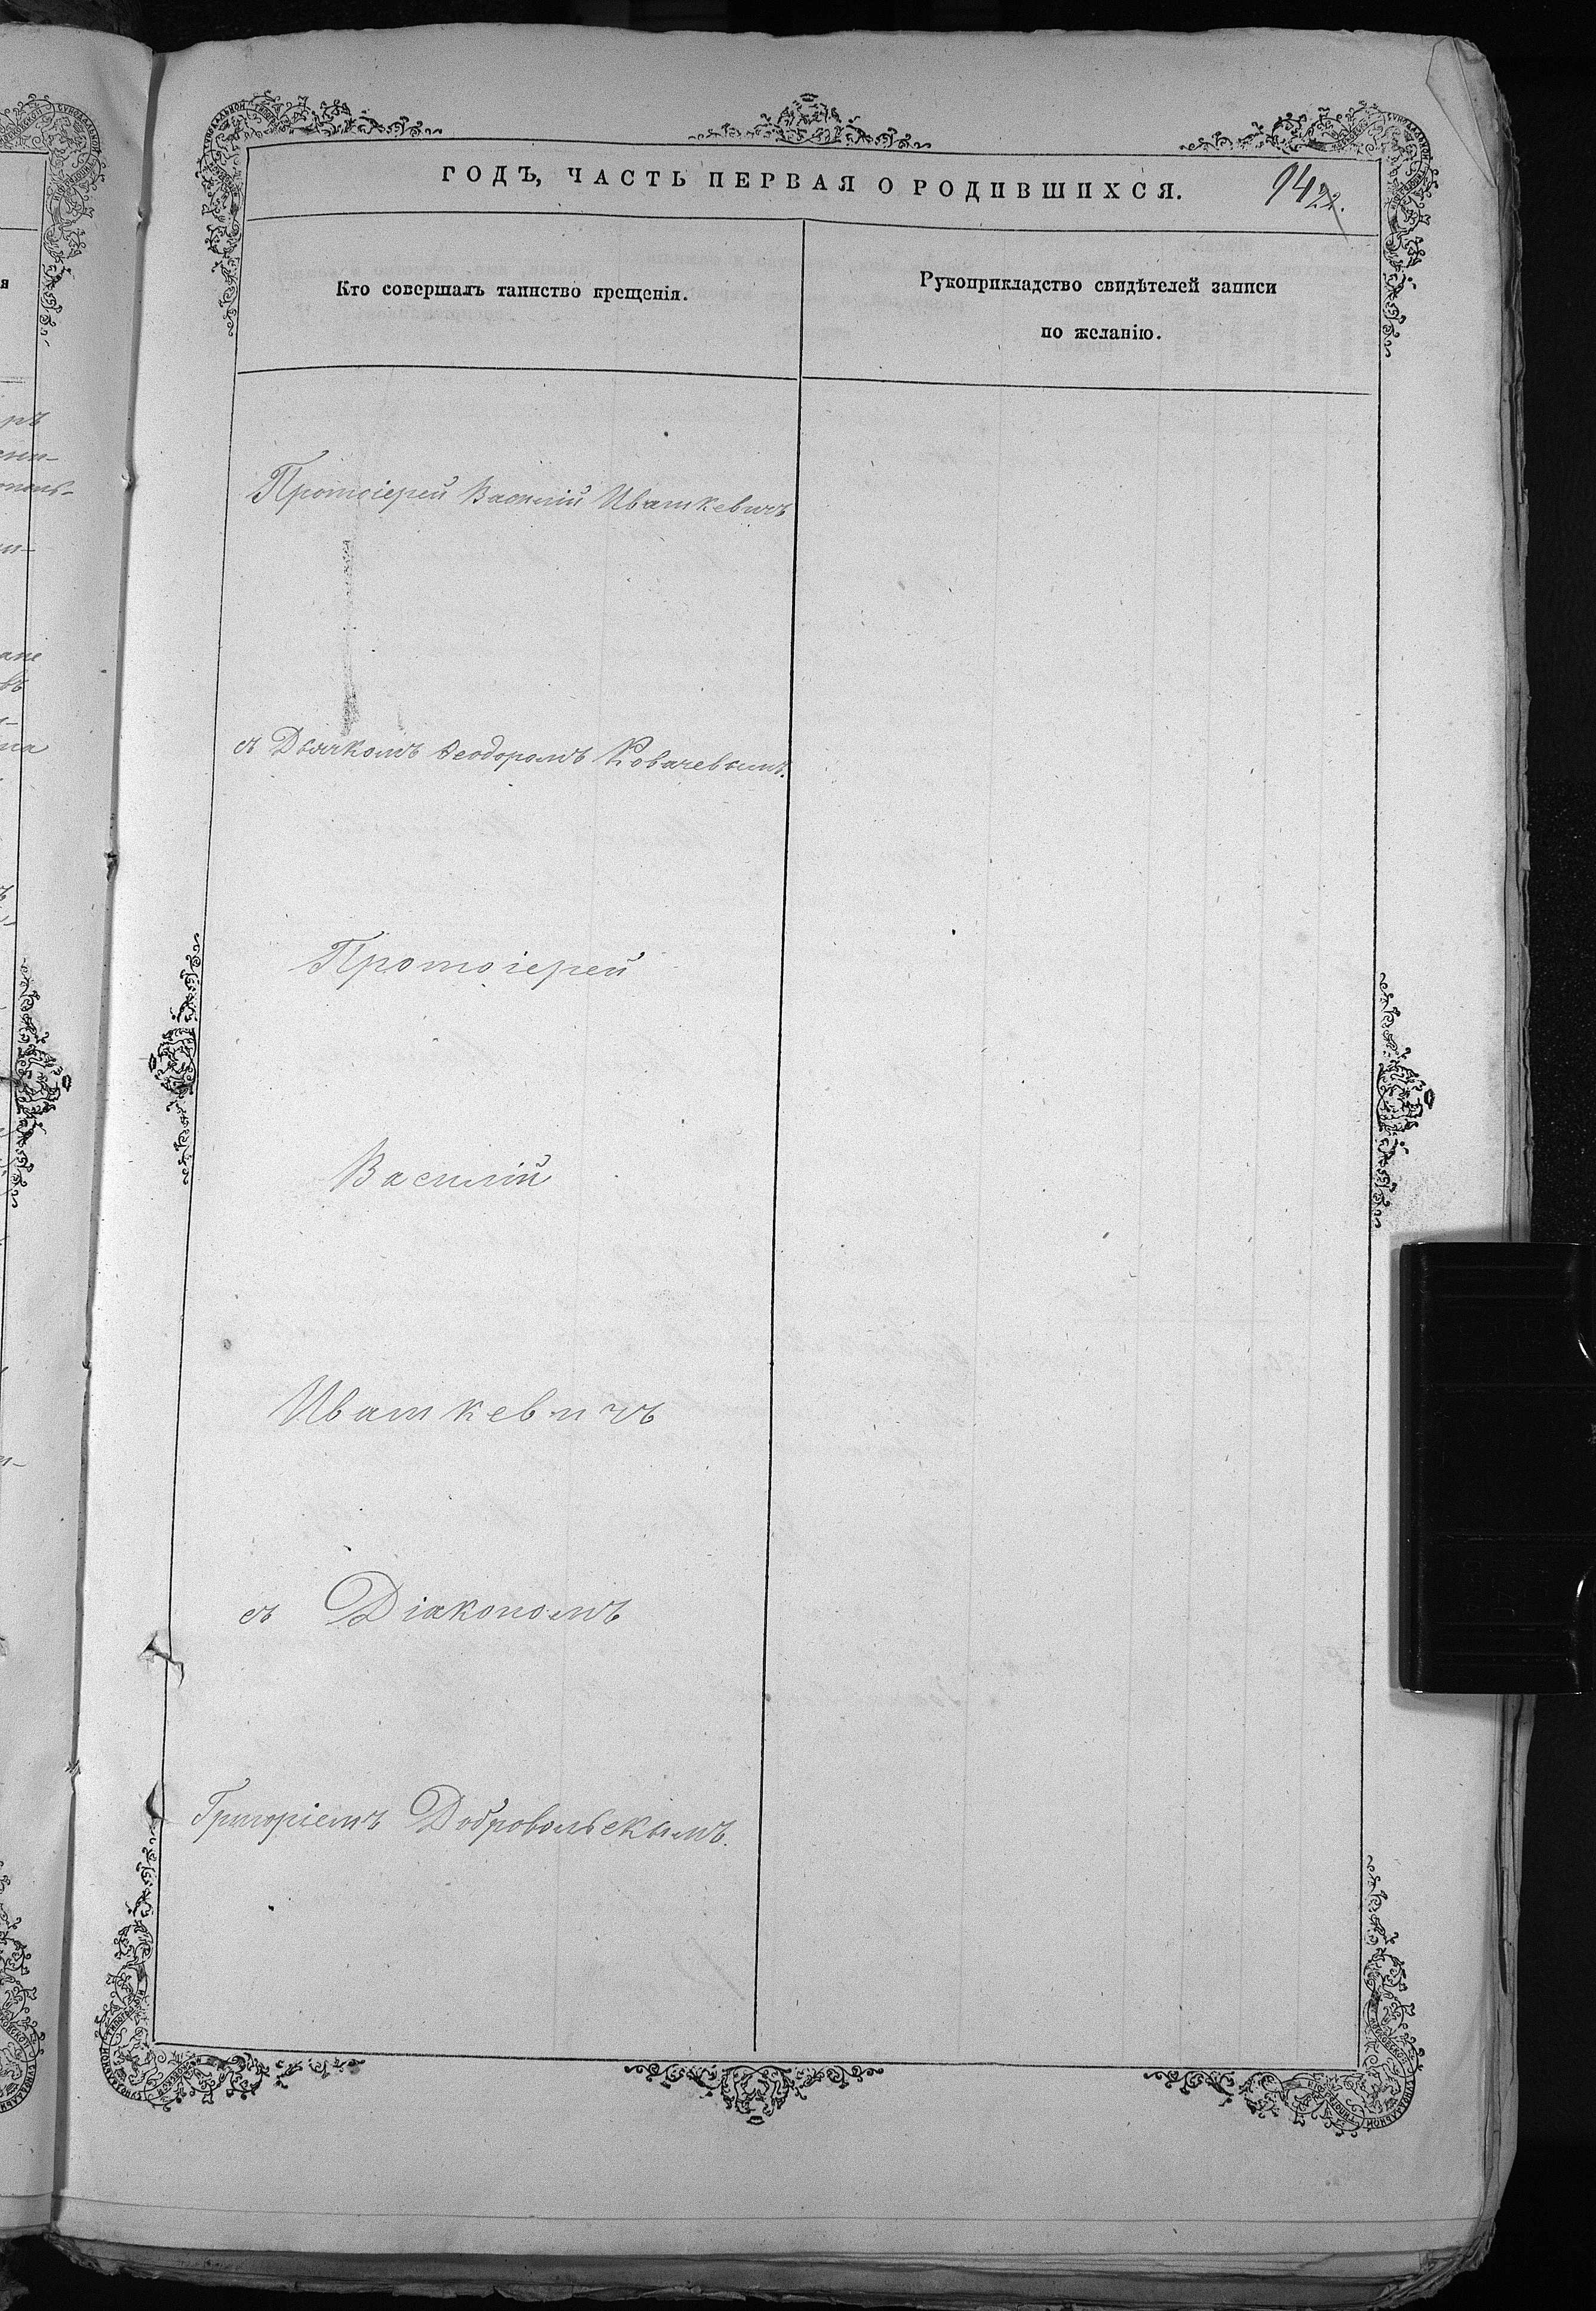 ГОДЪ, ЧАСТЬ ПЕРВАЯ О РОДИВШИХСЯ.
94
22.
Кто совершалъ таинство крещенія.
Рукоприкладство свидѣтелей записи
по желанію.
Протоіерей Василій Ивашкевичъ
съ Дьячкомъ Ѳеодоромъ Ковачевымъ.
Протоіерей
Василій
Ивашкевичъ
съ Діакономъ
Григоріемъ Добровольскимъ.